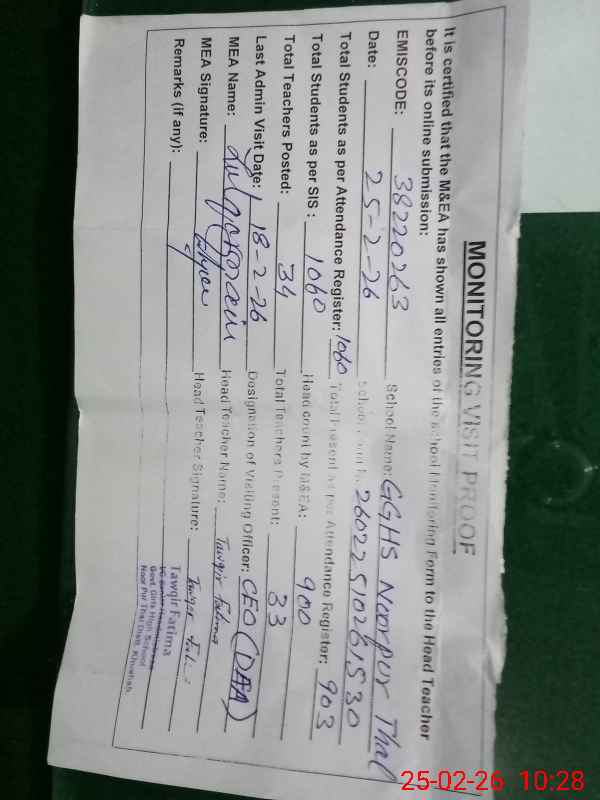 MONITORING VISIT PROOF
It is certified that the M&EA has shown all entries of the school Monitoring Form to the Head Teacher
before its online submission:
EMISCODE: 38220263 School Name: GGHS Noorpur Thal
Date: 25-2-26 School 26022510261530
Total Students as per Attendance Register: 1060 Total Present as per Attendance Register: 903
Total Students as per SIS: 1060 Head count by M&EA: 900
Total Teachers Posted: 34 Total Teachers Present: 33
Last Admin Visit Date: 18-2-26 Designation of Visiting Officer: CEO (DEA)
MEA Name: Head Teacher Name: Tawqir Fatima
MEA Signature: Head Teacher Signature: Tawqir
Remarks (if any):
Tawqir Fatima
Govt. Girls High School
Noor Pur Thal Distt. Khushab.
25-02-26 10:28